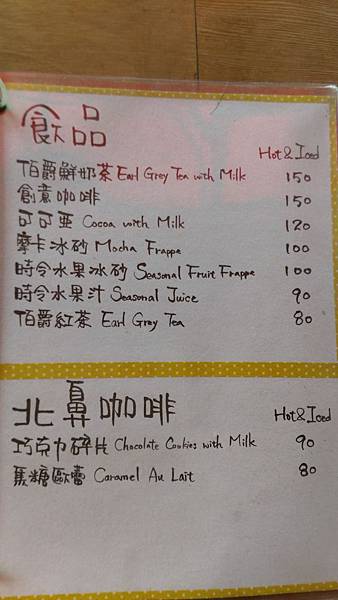 飲品
Hot & Iced
伯爵鮮奶茶 Earl Grey Tea with Milk 150
創意咖啡 150
可可亞 Cocoa with Milk 120
摩卡冰砂 Mocha Frappe 100
時令水果冰砂 Seasonal Fruit Frappe 100
時令水果汁 Seasonal Juice 90
伯爵紅茶 Earl Grey Tea 80
北鼻咖啡 Hot & Iced
巧克力碎片 Chocolate Cookies with Milk 90
焦糖歐蕾 Caramel Au Lait 80